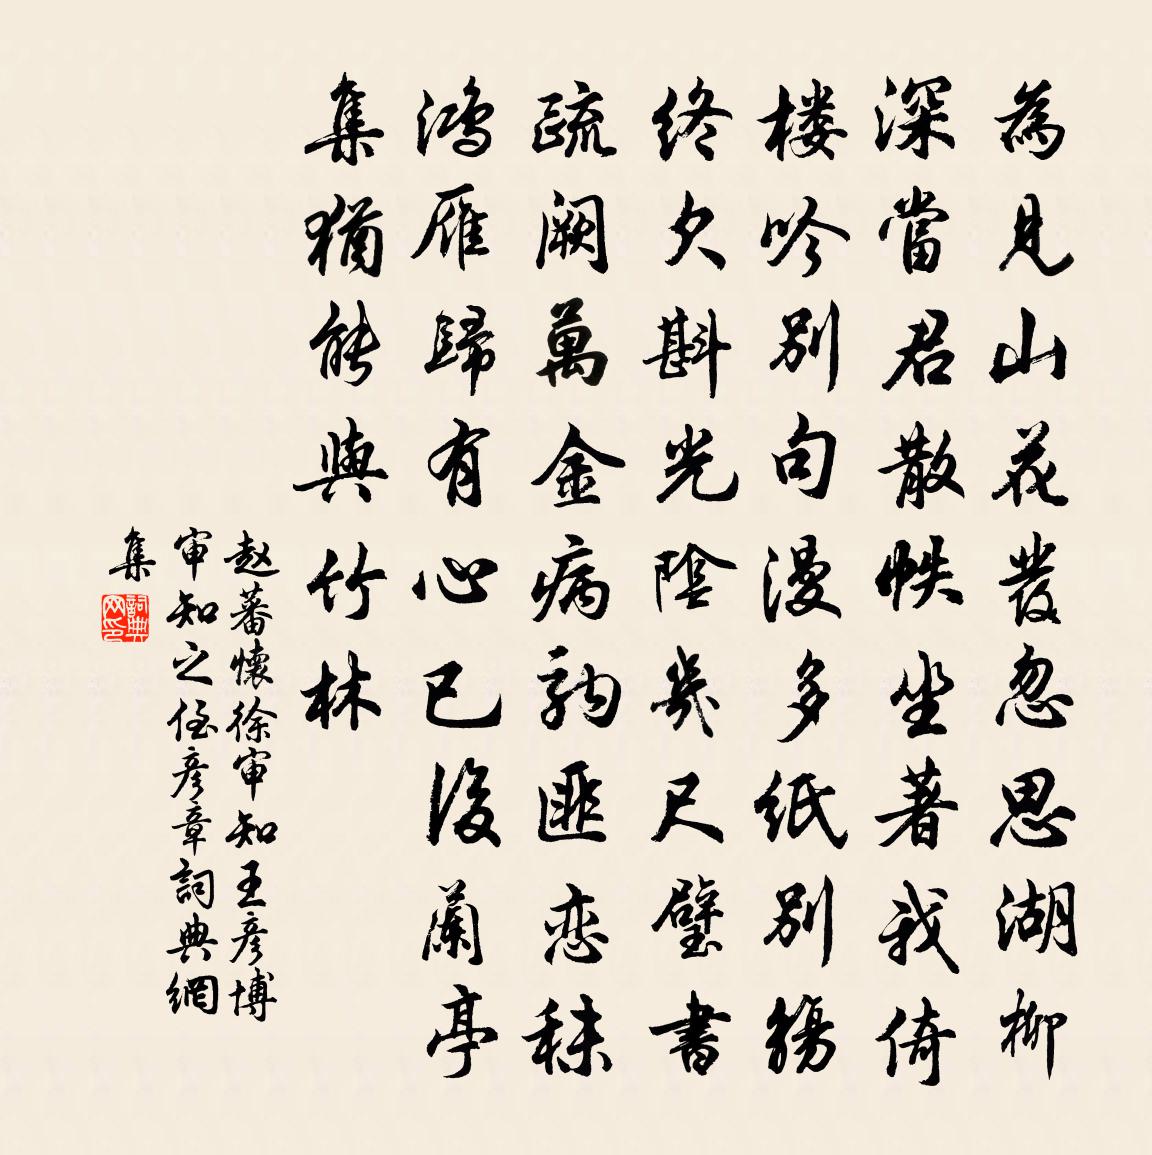 為見山花發忽思湖柳
深當君散帙坐著我倚
楼吟别句漫多紙别觴
终欠斟光陰幾尺璧書
疏阙萬金病鞫匪恋秣
鴻雁歸有心已後蘭亭
集猶能與竹林
赵蕃懷徐审知王彦博
审知之侄彦章詞典網
集
詞典網印